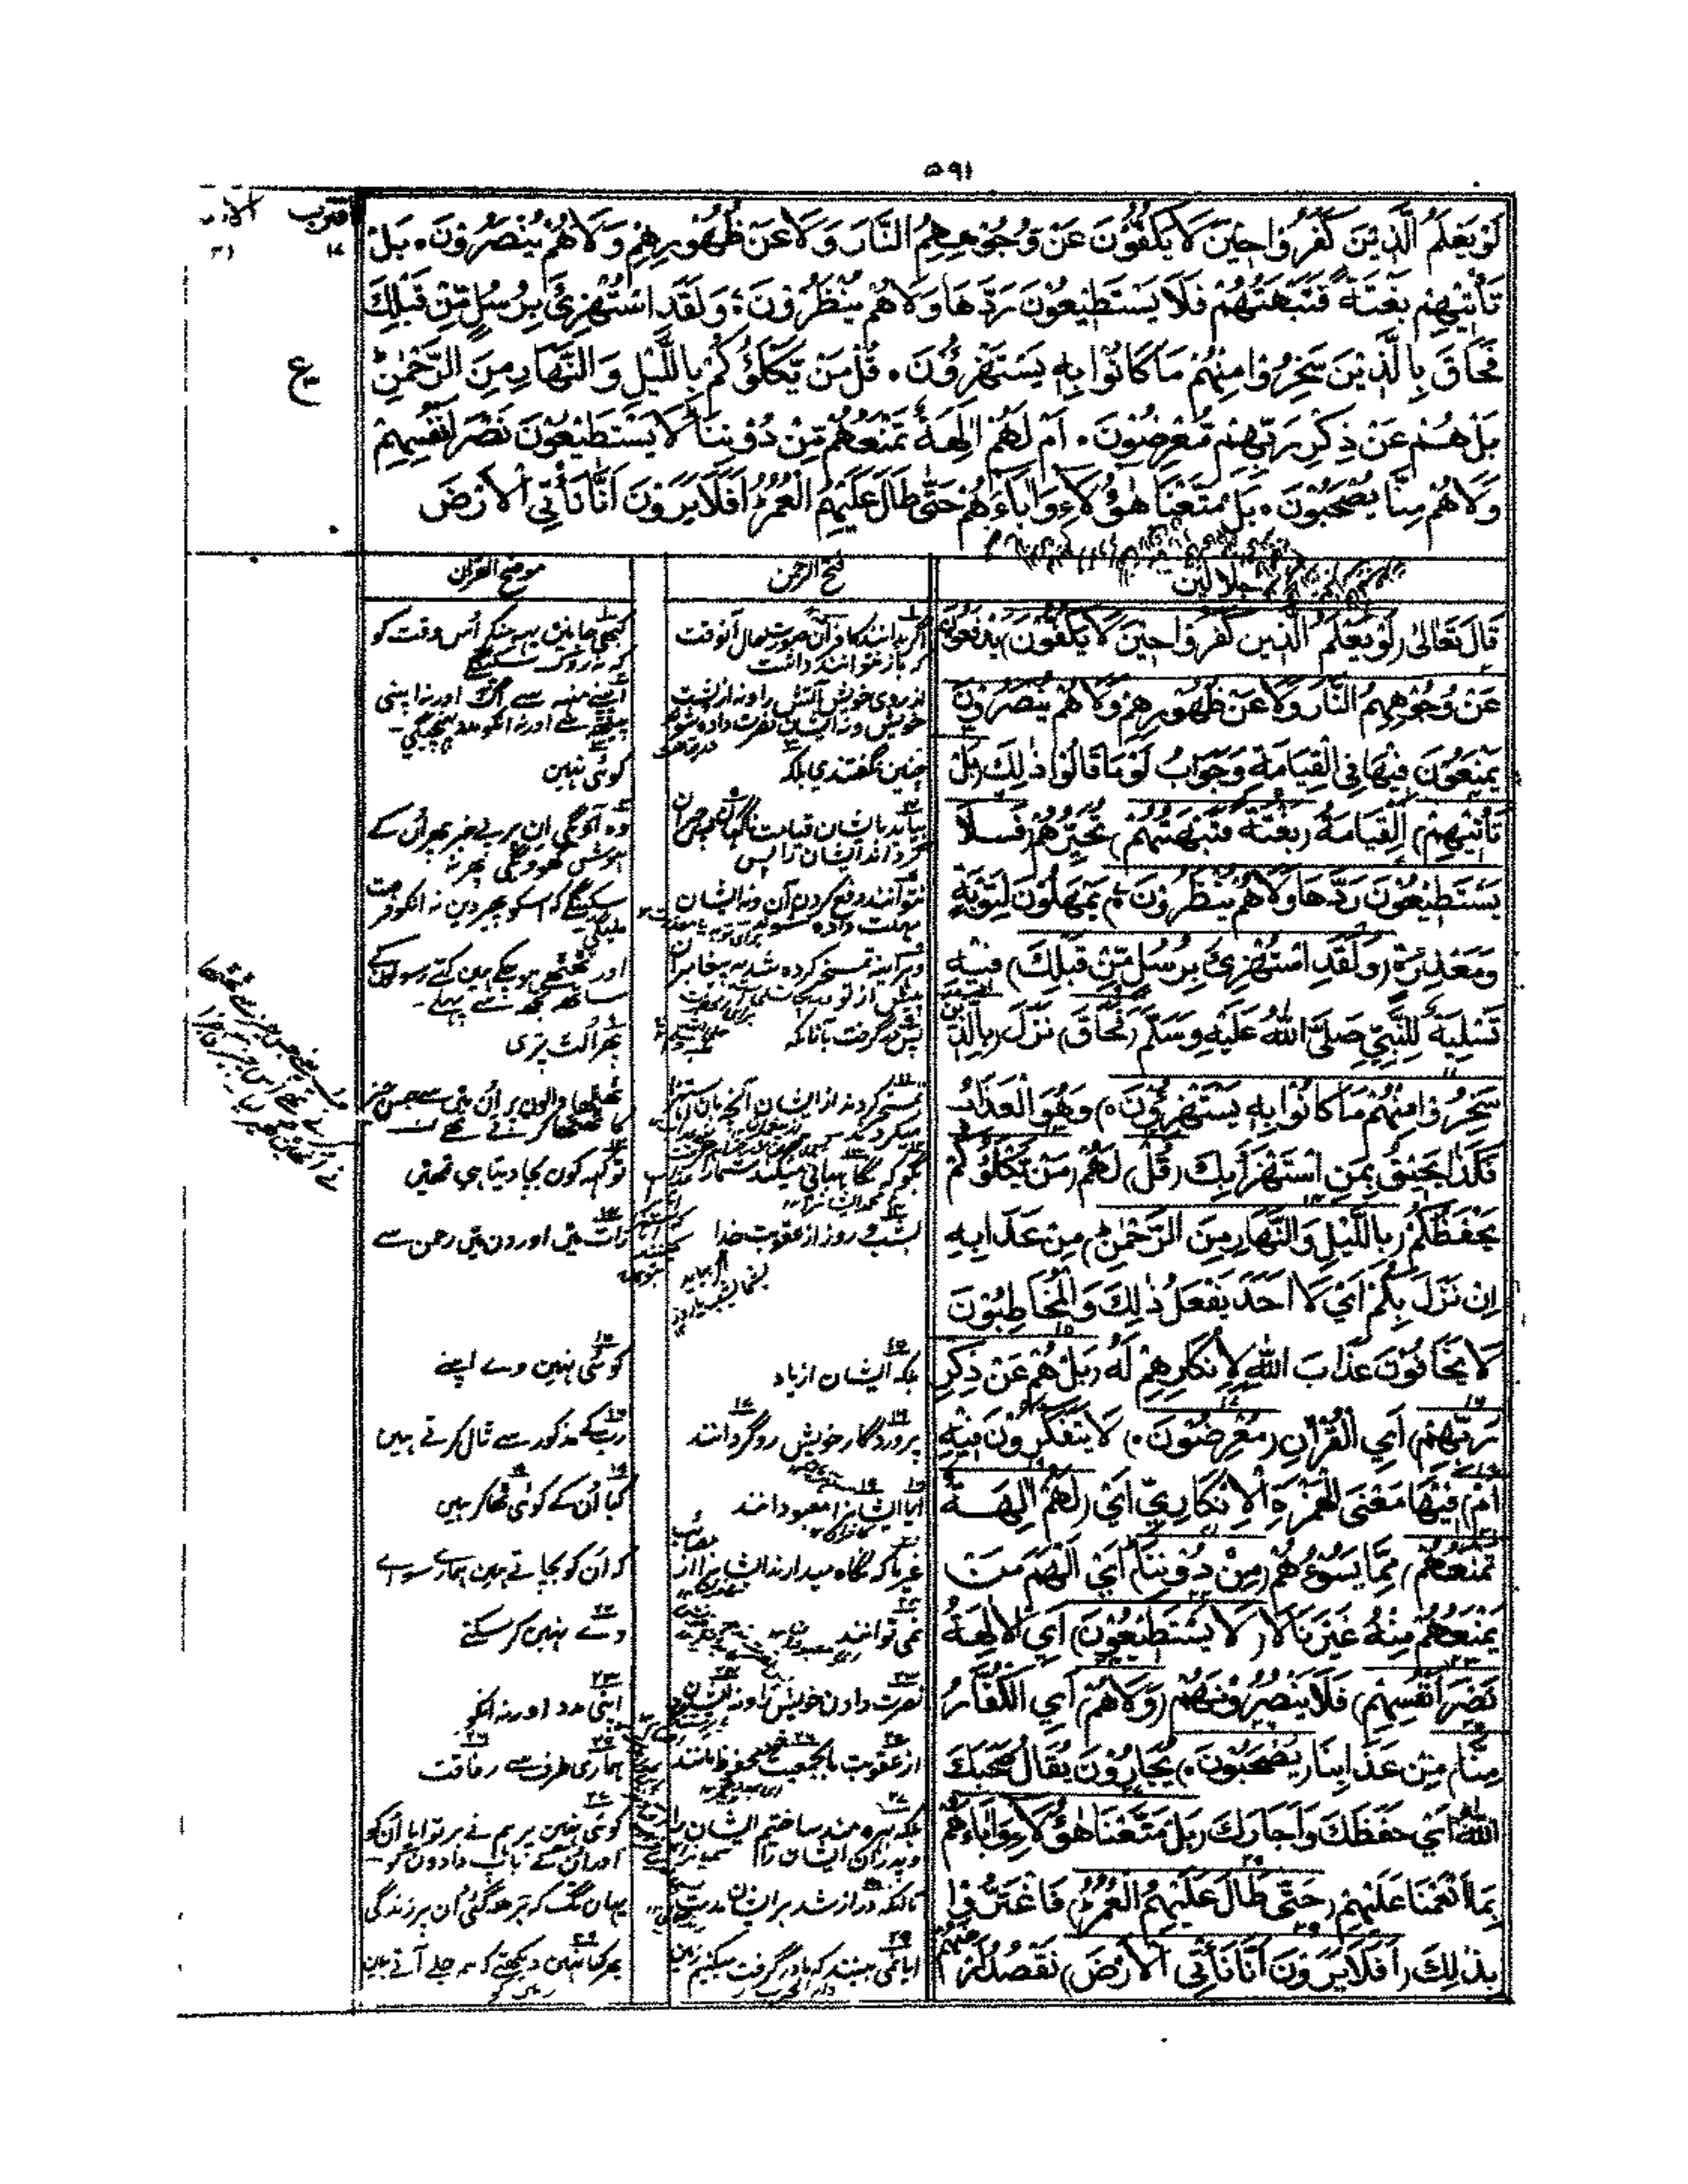 ٥٩١
اقترب
١٧
٢١
لَوْيَعْلَمُ الَّذِيْنَ كَفَرُوْا حِيْنَ لَا يَكُفُّوْنَ عَنْ وُجُوْهِهِمُ النَّارَ وَلَا عَنْ ظُهُوْرِهِمْ وَلَا هُمْ يُنْصَرُوْنَ۔ بَلْ
تَأْتِيْهِمْ بَغْتَةً فَتَبْهَتُهُمْ فَلَا يَسْتَطِيْعُوْنَ رَدَّهَا وَلَا هُمْ يُنْظَرُوْنَ۔ وَلَقَدِ اسْتُهْزِئَ بِرُسُلٍ مِّنْ قَبْلِكَ
فَحَاقَ بِالَّذِيْنَ سَخِرُوْا مِنْهُمْ مَا كَانُوْا بِهٖ يَسْتَهْزِؤُنَ۔ قُلْ مَنْ يَّكْلَؤُكُمْ بِاللَّيْلِ وَالنَّهَارِ مِنَ الرَّحْمٰنِ ط
ع
بَلْ هُمْ عَنْ ذِكْرِ رَبِّهِمْ مُّعْرِضُوْنَ۔ اَمْ لَهُمْ اٰلِهَةٌ تَمْنَعُهُمْ مِّنْ دُوْنِنَا لَا يَسْتَطِيْعُوْنَ نَصْرَ اَنْفُسِهِمْ
وَلَا هُمْ مِنَّا يُصْحَبُوْنَ۔ بَلْ مَتَّعْنَا هٰؤُلَاءِ وَاٰبَاءَهُمْ حَتّٰى طَالَ عَلَيْهِمُ الْعُمُرُ اَفَلَا يَرَوْنَ اَنَّا نَأْتِي الْاَرْضَ
جلالين
قَالَ تَعَالٰى (لَوْ يَعْلَمُ الَّذِيْنَ كَفَرُوْا حِيْنَ لَا يَكُفُّوْنَ) يَدْفَعُوْنَ
عَنْ وُجُوْهِهِمُ النَّارَ وَلَا عَنْ ظُهُوْرِهِمْ وَلَا هُمْ يُنْصَرُوْنَ
يُمْنَعُوْنَ فِيْهَا فِي الْقِيَامَةِ وَجَوَابُ لَوْ مَا قَالُوْا ذٰلِكَ (بَلْ
تَأْتِيْهِمْ) الْقِيَامَةُ (بَغْتَةً فَتَبْهَتُهُمْ) تُحَيِّرُهُمْ (فَلَا
يَسْتَطِيْعُوْنَ رَدَّهَا وَلَا هُمْ يُنْظَرُوْنَ) يُمْهَلُوْنَ لِتَوْبَةٍ
وَمَعْذِرَةٍ (وَلَقَدِ اسْتُهْزِئَ بِرُسُلٍ مِّنْ قَبْلِكَ) فِيْهِ
تَسْلِيَةٌ لِلنَّبِيِّ صَلَّى اللهُ عَلَيْهِ وَسَلَّمَ (فَحَاقَ) نَزَلَ (بِالَّذِيْنَ
سَخِرُوْا مِنْهُمْ مَا كَانُوْا بِهٖ يَسْتَهْزِؤُنَ) وَهُوَ الْعَذَابُ
فَكَذَا يَحِيْقُ بِمَنِ اسْتَهْزَأَ بِكَ (قُلْ) لَهُمْ (مَنْ يَكْلَؤُكُمْ
يَحْفَظُكُمْ (بِاللَّيْلِ وَالنَّهَارِ مِنَ الرَّحْمٰنِ) مِنْ عَذَابِهِ
اِنْ نَزَلَ بِكُمْ اَيْ لَا اَحَدَ يَفْعَلُ ذٰلِكَ وَالْمُخَاطَبُوْنَ
لَا يَخَافُوْنَ عَذَابَ اللهِ لِاِنْكَارِهِمْ لَهُ (بَلْ هُمْ عَنْ ذِكْرِ
رَبِّهِمْ) اَيِ الْقُرْاٰنِ (مُعْرِضُوْنَ) لَا يَتَفَكَّرُوْنَ فِيْهِ
(اَمْ) فِيْهَا مَعْنَى الْهَمْزَةِ الْاِنْكَارِيِّ اَيْ (لَهُمْ اٰلِهَةٌ
تَمْنَعُهُمْ) مِمَّا يَسُوْءُهُمْ (مِنْ دُوْنِنَا) اَيْ اَلَهُمْ مَنْ
يَمْنَعُهُمْ مِنْهُ غَيْرُنَا لَا (لَا يَسْتَطِيْعُوْنَ) اَيِ الْاٰلِهَةُ
نَصْرَ اَنْفُسِهِمْ) فَلَا يَنْصُرُوْنَهُمْ (وَلَا هُمْ) اَيِ الْكُفَّارُ
مِنَّا) مِنْ عَذَابِنَا (يُصْحَبُوْنَ) يُجَارُوْنَ يُقَالُ صَحِبَكَ
اللهُ اَيْ حَفِظَكَ وَاَجَارَكَ (بَلْ مَتَّعْنَا هٰؤُلَاءِ وَاٰبَاءَهُمْ
بِمَا اَنْعَمْنَا عَلَيْهِمْ (حَتّٰى طَالَ عَلَيْهِمُ الْعُمُرُ) فَاغْتَرُّوْا
بِذٰلِكَ (اَفَلَا يَرَوْنَ اَنَّا نَأْتِي الْاَرْضَ) نَقْصُدُ اَرْضَهُمْ
فتح الرحمن
اگر بدانند کافران صورت حال آنوقت
کہ باز نتوانند داشت
از روی خویش آتش را و نہ از پشت
خویش و نہ ایشان نصرت داده شوند
چنین نگفتندی بلکہ
بیاید بایشان قیامت ناگہان پس حیران
گرداند ایشان را پس
نتوانند دفع کردن آن و نہ ایشان
مہلت داده شوند
و ہرآینہ تمسخر کرده شد بہ پیغامبران
پیش از تو
پس درگرفت بآنانکہ
تمسخر کردند از ایشان آنچہ بآن
میکردند
بگو کہ نگاہبانی میکند شمارا
بشب و روز از عقوبت خدا
بلکہ ایشان از یاد
پروردگار خویش روگردانند
آیا ایشانرا معبودانند
غیر ما کہ نگاه میدارند ایشانرا از
نمی توانند
نصرت دادن خویش را و نہ ایشان
از عقوبت ما بجمعیت محفوظ مانند
بلکہ بہره مند ساختیم ایشان را
و پدران ایشان را
تا آنکہ دراز شد بر ایشان مدت
آیا نمی بینند کہ ما درگرفت میکنیم زمین
موضح القران
کبھی جانین یہ منکر اُس وقت کو
کہ نہ روک سکینگے
اپنے منہ سے آگ اور نہ اپنی
پیٹھ سے اور نہ انکو مدد پہنچیگی
کوئی نہین
وہ آویگی ان پر بے خبر پھر اُن کے
ہوش کھوویگی پھر نہ
سکینگے کہ اسکو پھیر دین نہ انکو فرصت
ملیگی
اور ٹھٹھے ہو چکے ہین کتنے رسولون کے
ساتھ تجھ سے پہلے
پھر اُلٹ پڑی
ٹھٹھا والون پر اُن مین سے جس چیز
کا ٹھٹھا کرتے تھے
تو کہہ کون بچا دیتا ہی تمھین
رات مین اور دن مین رحمن سے
کوئی نہین وے اپنے
رب کے مذکور سے ٹال کرتے ہین
کیا اُن کے کوئی ٹھاکر ہین
کہ اُن کو بچاتے ہین ہمارے سواے
وے نہین کر سکتے
اپنی مدد اور نہ انکو
ہماری طرف سے رفاقت
کوئی نہین پر ہم نے برتوایا اُن کو
اور اُن کے باپ دادون کو
یہان تک کہ بڑھ گئی اُن پر زندگی
پھر کیا نہین دیکھتے کہ ہم چلے آتے ہین
زمین کو